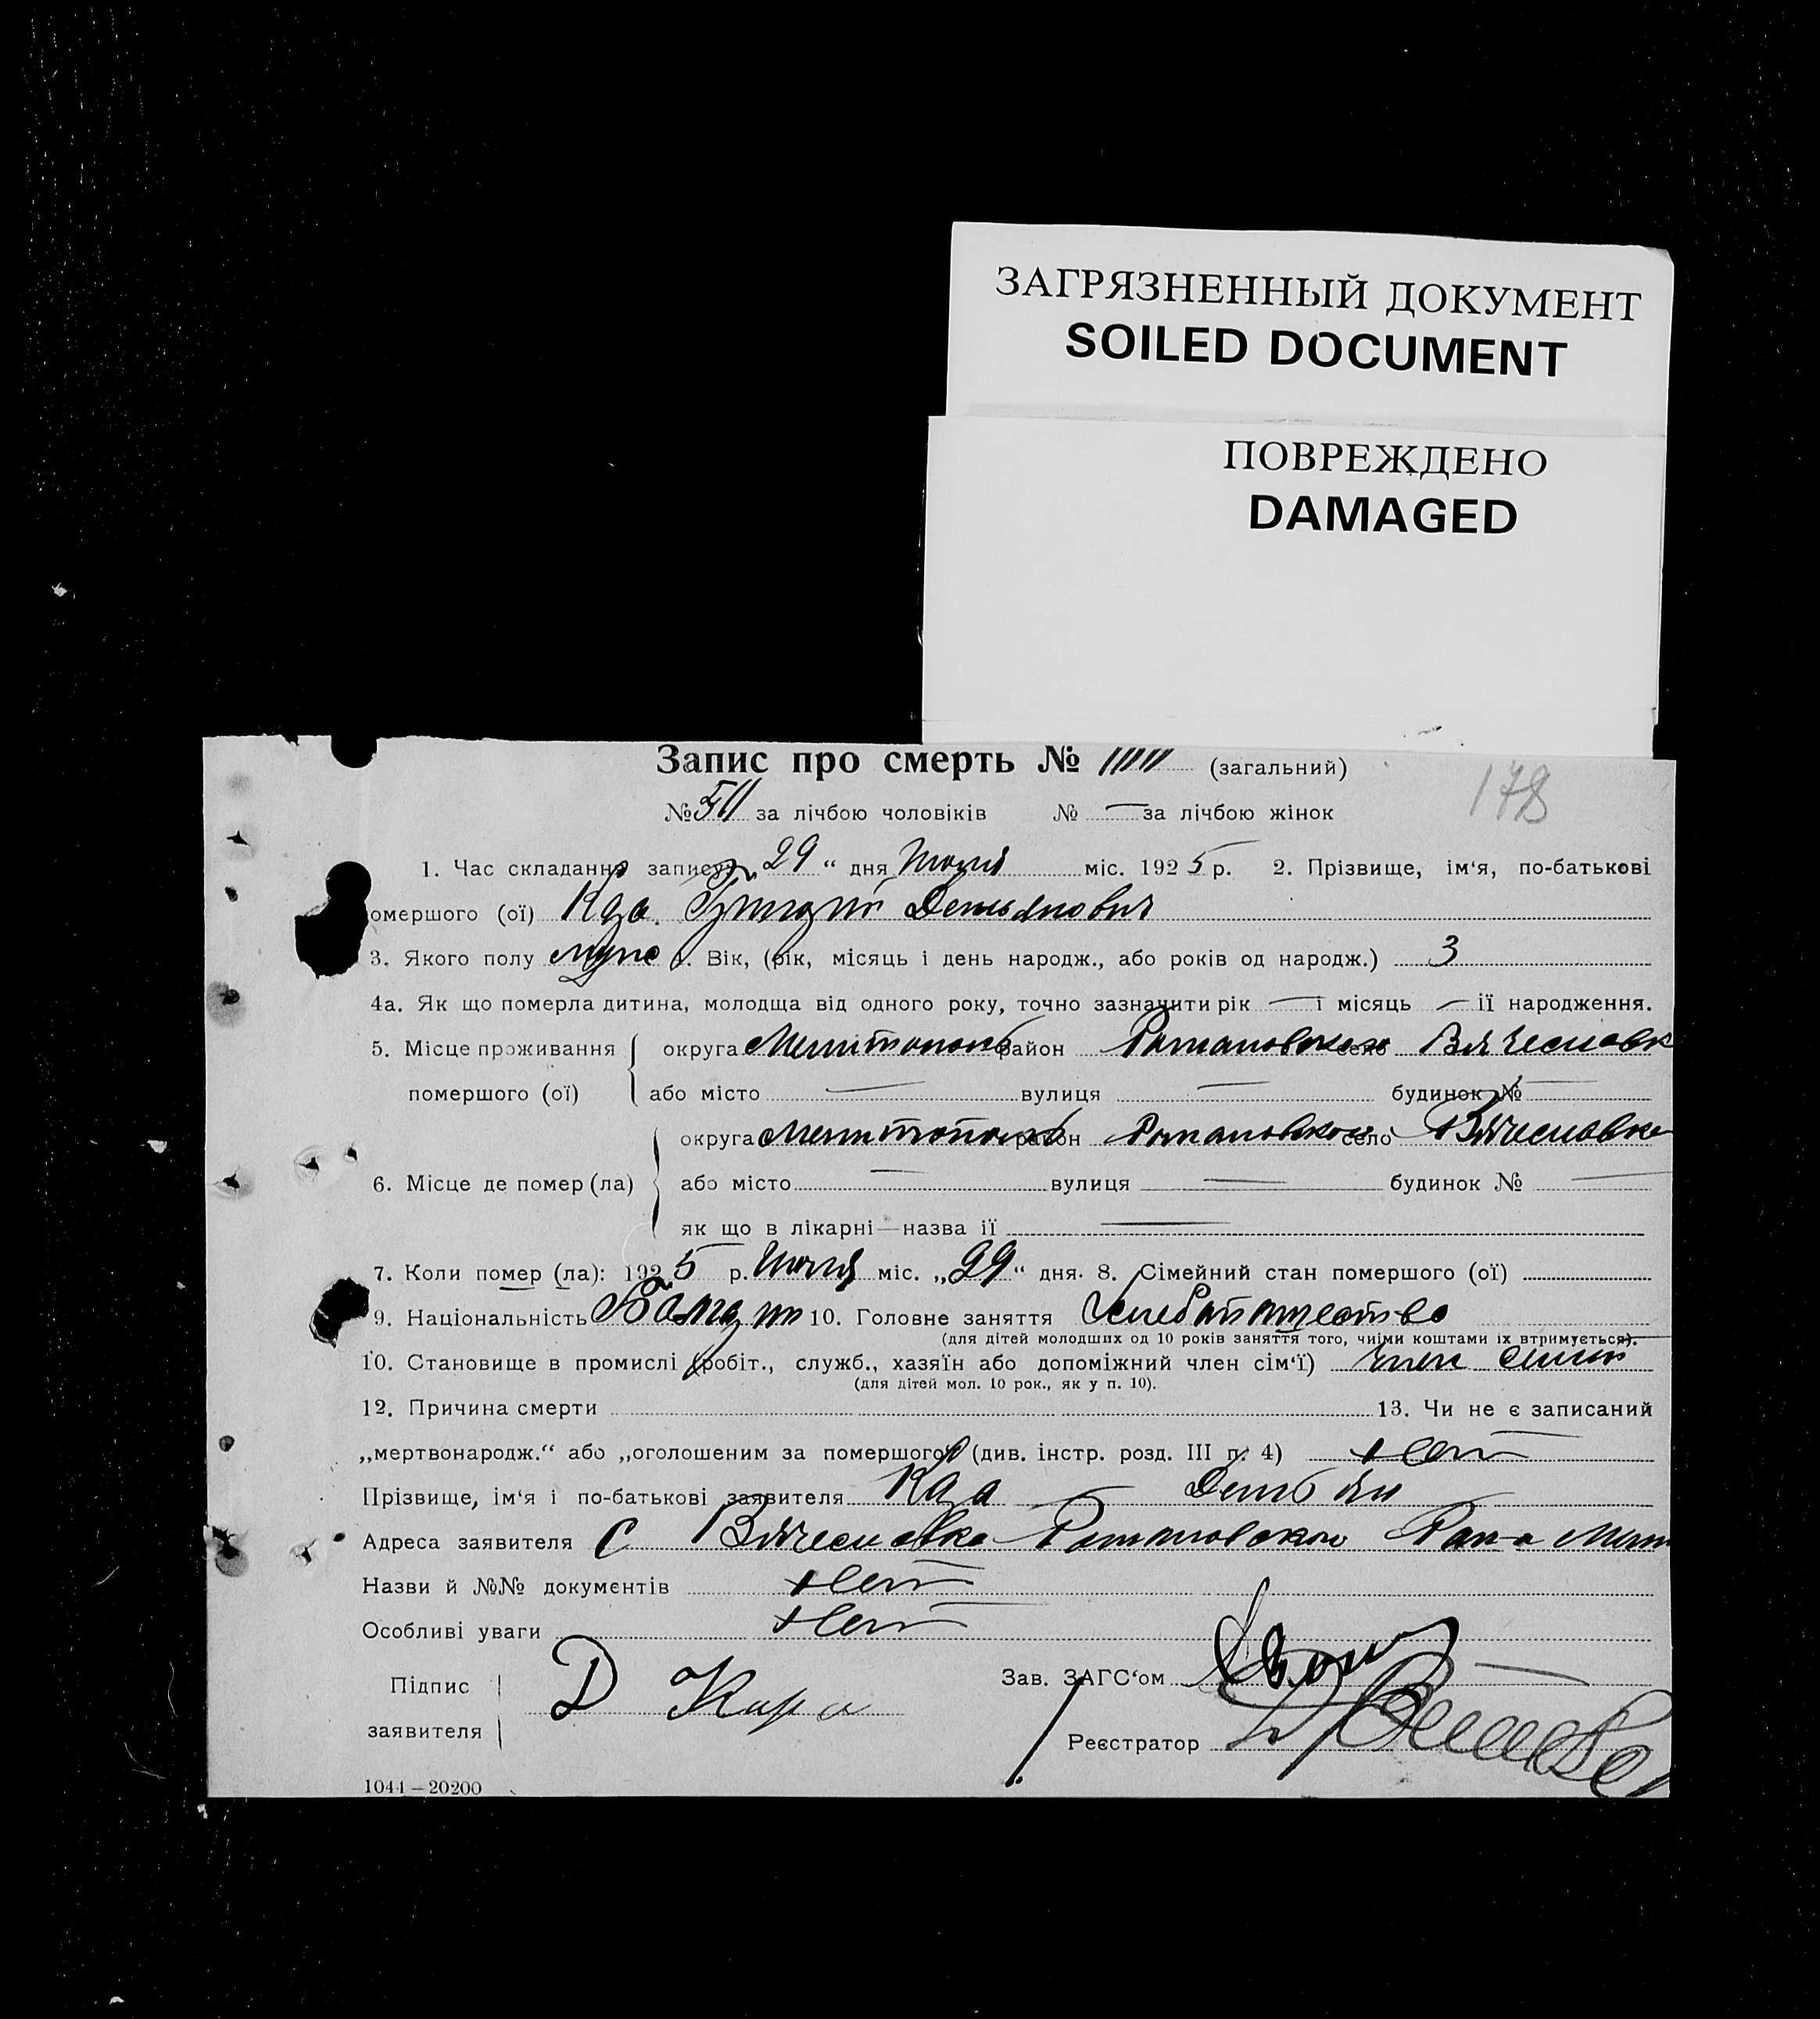 ЗАГРЯЗНЕННЫЙ ДОКУМЕНТ
SOILED DOCUMENT
ПОВРЕЖДЕНО
DAMAGED
Запис про смерть № (загальний)
178
№ за лічбою чоловіків № — за лічбою жінок
1. Час складання запису: „29“ дня Июля міс. 1925 р. 2. Прізвище, ім‘я, по-батькові
омершого (ої) Кара Григорій Демьянович
3. Якого полу муж 4. Вік, (рік, місяць і день народж., або років од народж.) 3
4а. Як що померла дитина, молодща від одного року, точно зазначити рік — і місяць — ії народження.
5. Місце проживання округа Мелитополь район Романовског село Вячесловк
помершого (ої) або місто — вулиця — будинок № —
округа Мелитополь район Романовског село Вячесловка
6. Місце де помер (ла) або місто — вулиця — будинок № —
як що в лікарні — назва ії —
7. Коли помер (ла): 1925 р. Июля міс. „29“ дня. 8. Сімейний стан помершого (ої)
9. Національність Болгарин 10. Головне заняття Хлебопашество
(для дітей молодших од 10 років заняття того, чиїми коштами їх втримується).
10. Становище в промислі (робіт., служб., хазяїн або допоміжний член сім‘ї) член семьи
(для дітей мол. 10 рок., як у п. 10).
12. Причина смерти 13. Чи не є записаний
„мертвонародж.“ або „оголошеним за помершого“ (див. інстр. розд. III п. 4) нет
Прізвище, ім‘я і по-батькові заявителя Кара Демьян
Адреса заявителя С Вячесловка Романовского Рап-а Мели
Назви й №№ документів нет
Особливі уваги нет
Підпис заявителя Д Кара
Зав. ЗАГС‘ом
Реєстратор
1044—20200